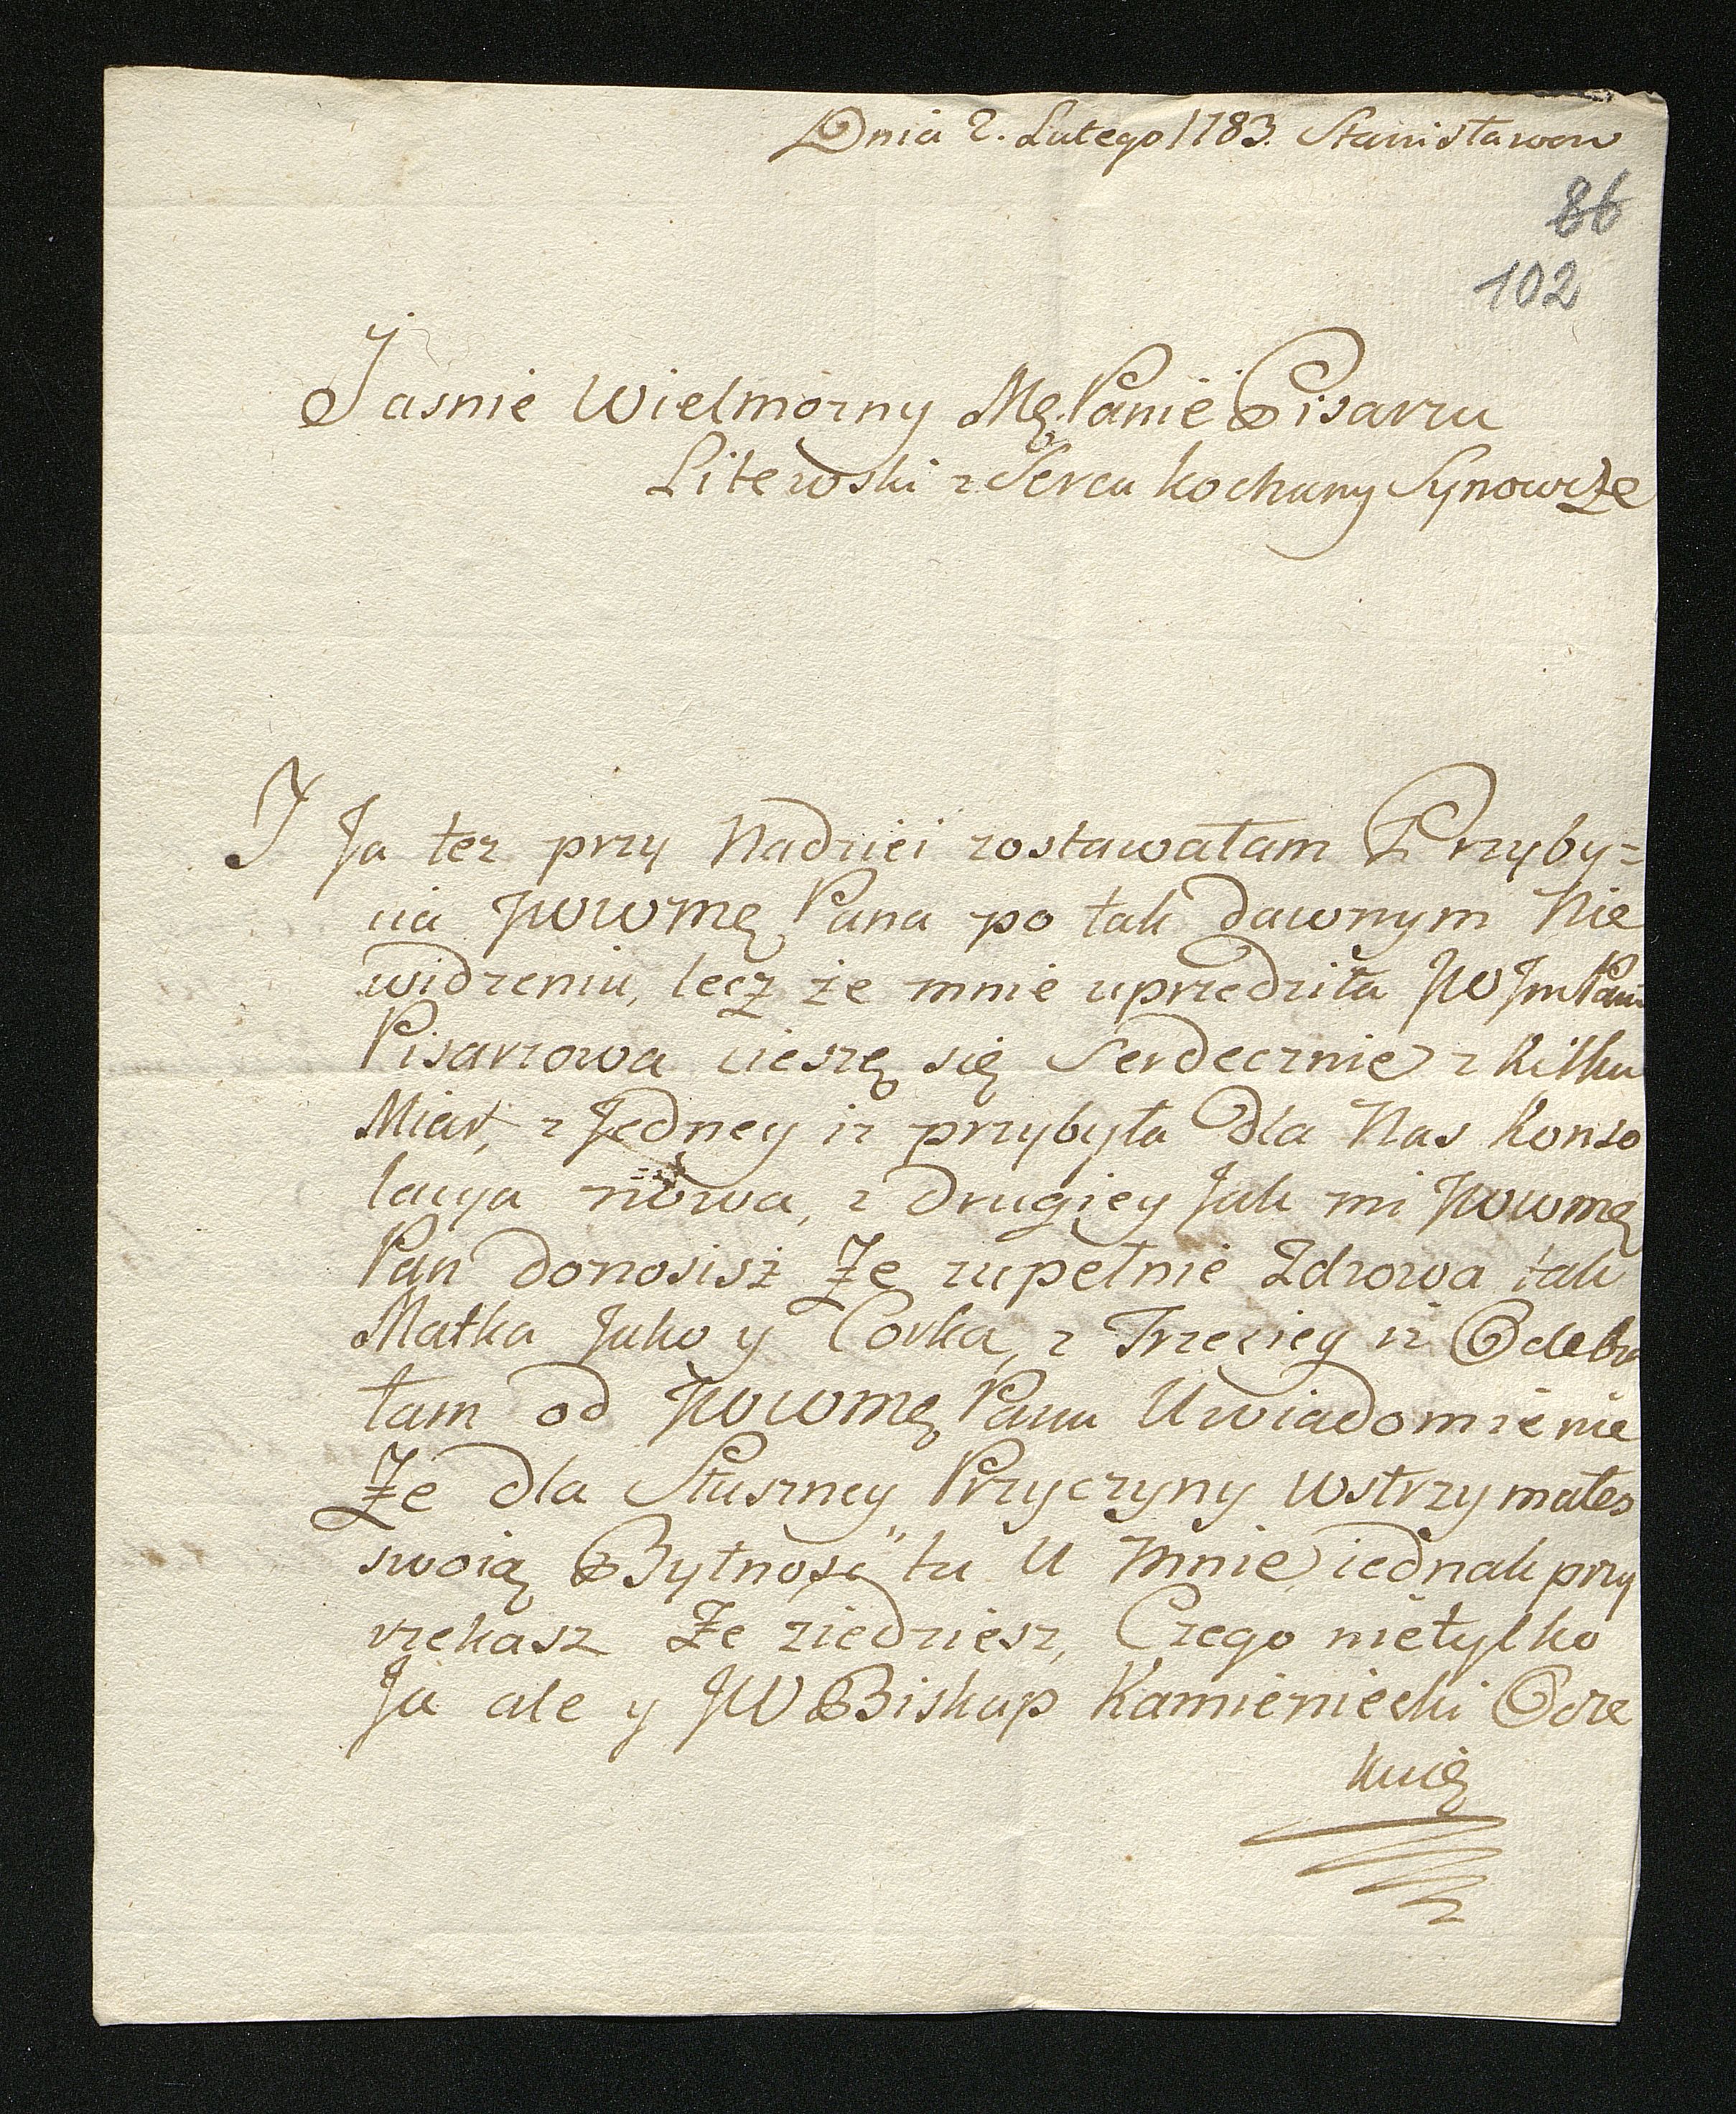 Dnia 2. Lutego 1783. Stanisławow
86
102
Jasnie Wielmozny Mę. Panie Pisarzu
Litewski z Serca kochany Synowcze
I Ja tez przy Nadziei zostawałam Przyby=
cia JWWMę Pana po tak dawnym Nie
widzeniu, lecz że mnie uprzedziła JWJm Pani
Pisarzowa cieszę się Serdecznie z kilku
Miar, z Jedney iz przybyła dla Nas Konso
lacya nowa, z drugiey Jak mi JWWMę
Pan donosisz Ze zupełnie Zdrowa tak
Matka Jako y Corka, z Trzeciey iz Odebra
łam od JWWMę Pana Uwiadomienie
Ze dla Słuszney Przyczyny Wstrzymałes
swoię Bytnosć tu U Mnie, iednak przy
rzekasz Ze ziedziesz, Czego nietylko
Ja ale y JW Biskup Kamieniecki Ocze
kuię